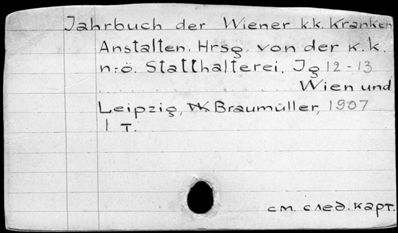 Jahrbuch der Wiener k.k. Kranken
Anstalten. Hrsg. von der k.k.
n:ö. Statthalterei. Jg 12-13
Wien und
Leipzig, W Braumüller, 1907
1 T.
см. след. карт.